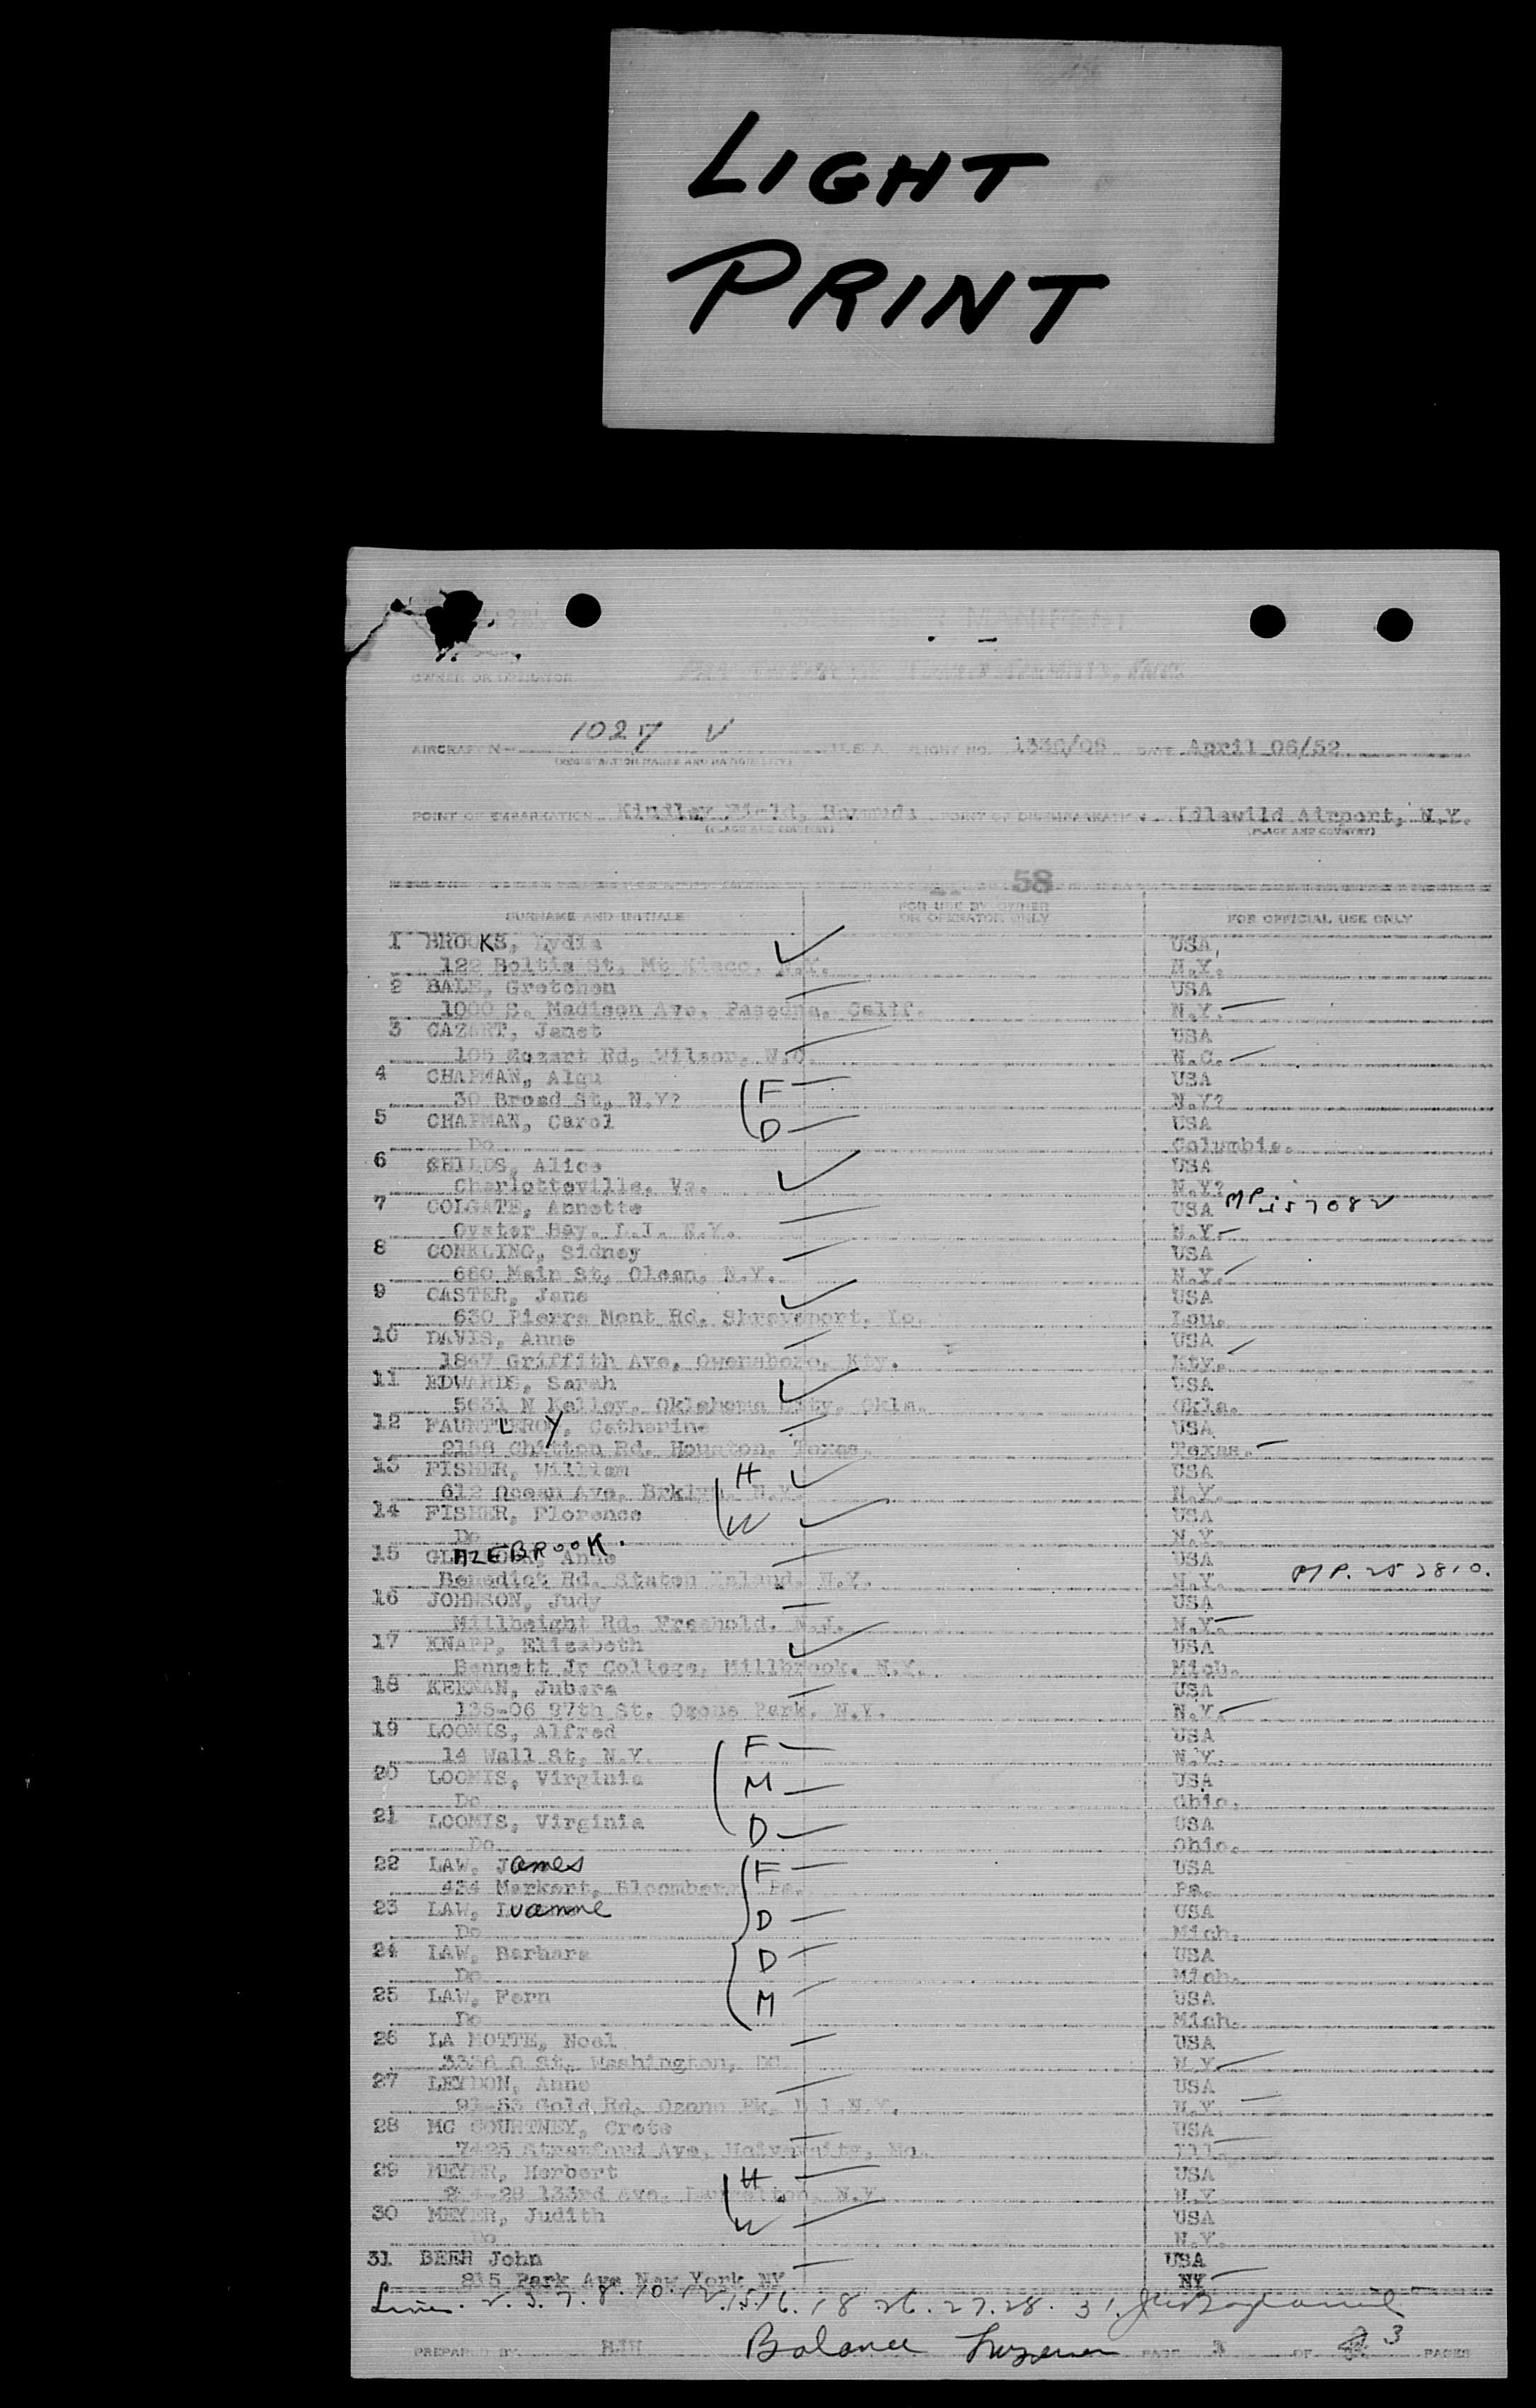 LIGHT
PRINT
OWNER OR OPERATOR
AIRCRAFT N- 1027 V U.S.A. FLIGHT NO. DATE April 06/52
(REGISTRATION MARKS AND NATIONALITY)
POINT OF EMBARKATION Kindley Field, Bermuda POINT OF DISEMBARKATION Idlewild Airport, N.Y.
(PLACE AND COUNTRY) (PLACE AND COUNTRY)
58
SURNAME AND INITIALS FOR USE BY OWNER OR OPERATOR ONLY FOR OFFICIAL USE ONLY
1 BROOKS, Lydia USA
122 St, Mt Kisco, N.Y. N.Y.
2 BALE, Gretchen USA
1000 S. Madison Ave, Pasedna, Calif. N.Y.
3 CAZART, Janet USA
105 Mozart Rd, Wilson, N.C. N.C.
4 CHAPMAN, USA
30 Broad St, N.Y? F N.Y?
5 CHAPMAN, Carol D USA
Do Columbia.
6 SHILDS, Alice USA
Charlotteville, Va. N.Y?
7 COLGATE, Annette USA MP
Oyster Bay, L.I. N.Y. N.Y.
8 CONKLING, Sidney USA
680 Main St, Olean, N.Y. N.Y.
9 CASTER, Jane USA
630 Pierre Mont Rd, Shreveport, Lo. Lou.
10 DAVIS, Anne USA
1847 Griffith Ave, Owensboro, Kty. Kty.
11 EDWARDS, Sarah USA
5631 N Kelley, Oklahoma City, Okla. Okla.
12 FAUNTLEROY, Catharine USA
2158 Chitton Rd, Houston, Texas. Texas.
13 FISHER, William H USA
612 Ocean Ave, Brklyn, N.Y. N.Y.
14 FISHER, Florence W USA
Do N.Y.
15 GLAZEBROOK. Anne USA
Benedict Rd, Staten Island, N.Y. N.Y. MP.
16 JOHNSON, Judy USA
Millheight Rd, Freehold, N.J. N.Y.
17 KNAPP, Elizabeth USA
Bennett Jr College, Millbrook. N.Y. Mich.
18 KEENAN, Jubera USA
135-06 97th St. Ozone Park, N.Y. N.Y.
19 LOOMIS, Alfred F USA
14 Wall St, N.Y. N.Y.
20 LOOMIS, Virginia M USA
Do Ohio.
21 LOOMIS, Virginia D USA
Do Ohio.
22 LAW, James F USA
434 Markert, Pa. Pa.
23 LAW, Luanne D USA
Do Mich.
24 LAW, Barbara D USA
Do Mich.
25 LAW, Fern M USA
Do Mich.
26 LA MOTTE, Noel USA
St, Washington, DC. N.Y.
27 LEYDON, Anne USA
Gold Rd, Ozone Pk, L.I.N.Y. N.Y.
28 MC COURTNEY, Crete USA
7425 Stranford Ave, University, Mo. Ill.
29 MEYER, Herbert H USA
133rd Ave, Laurelton, N.Y. N.Y.
30 MEYER, Judith W USA
Do N.Y.
31 BEER John USA
815 Park Ave New York NY NY
Lines. 2. 3. 7. 8. 10. 12. 15. 16. 18 26. 27. 28. 31.
PREPARED BY Balance PAGE 3 OF 3 PAGES